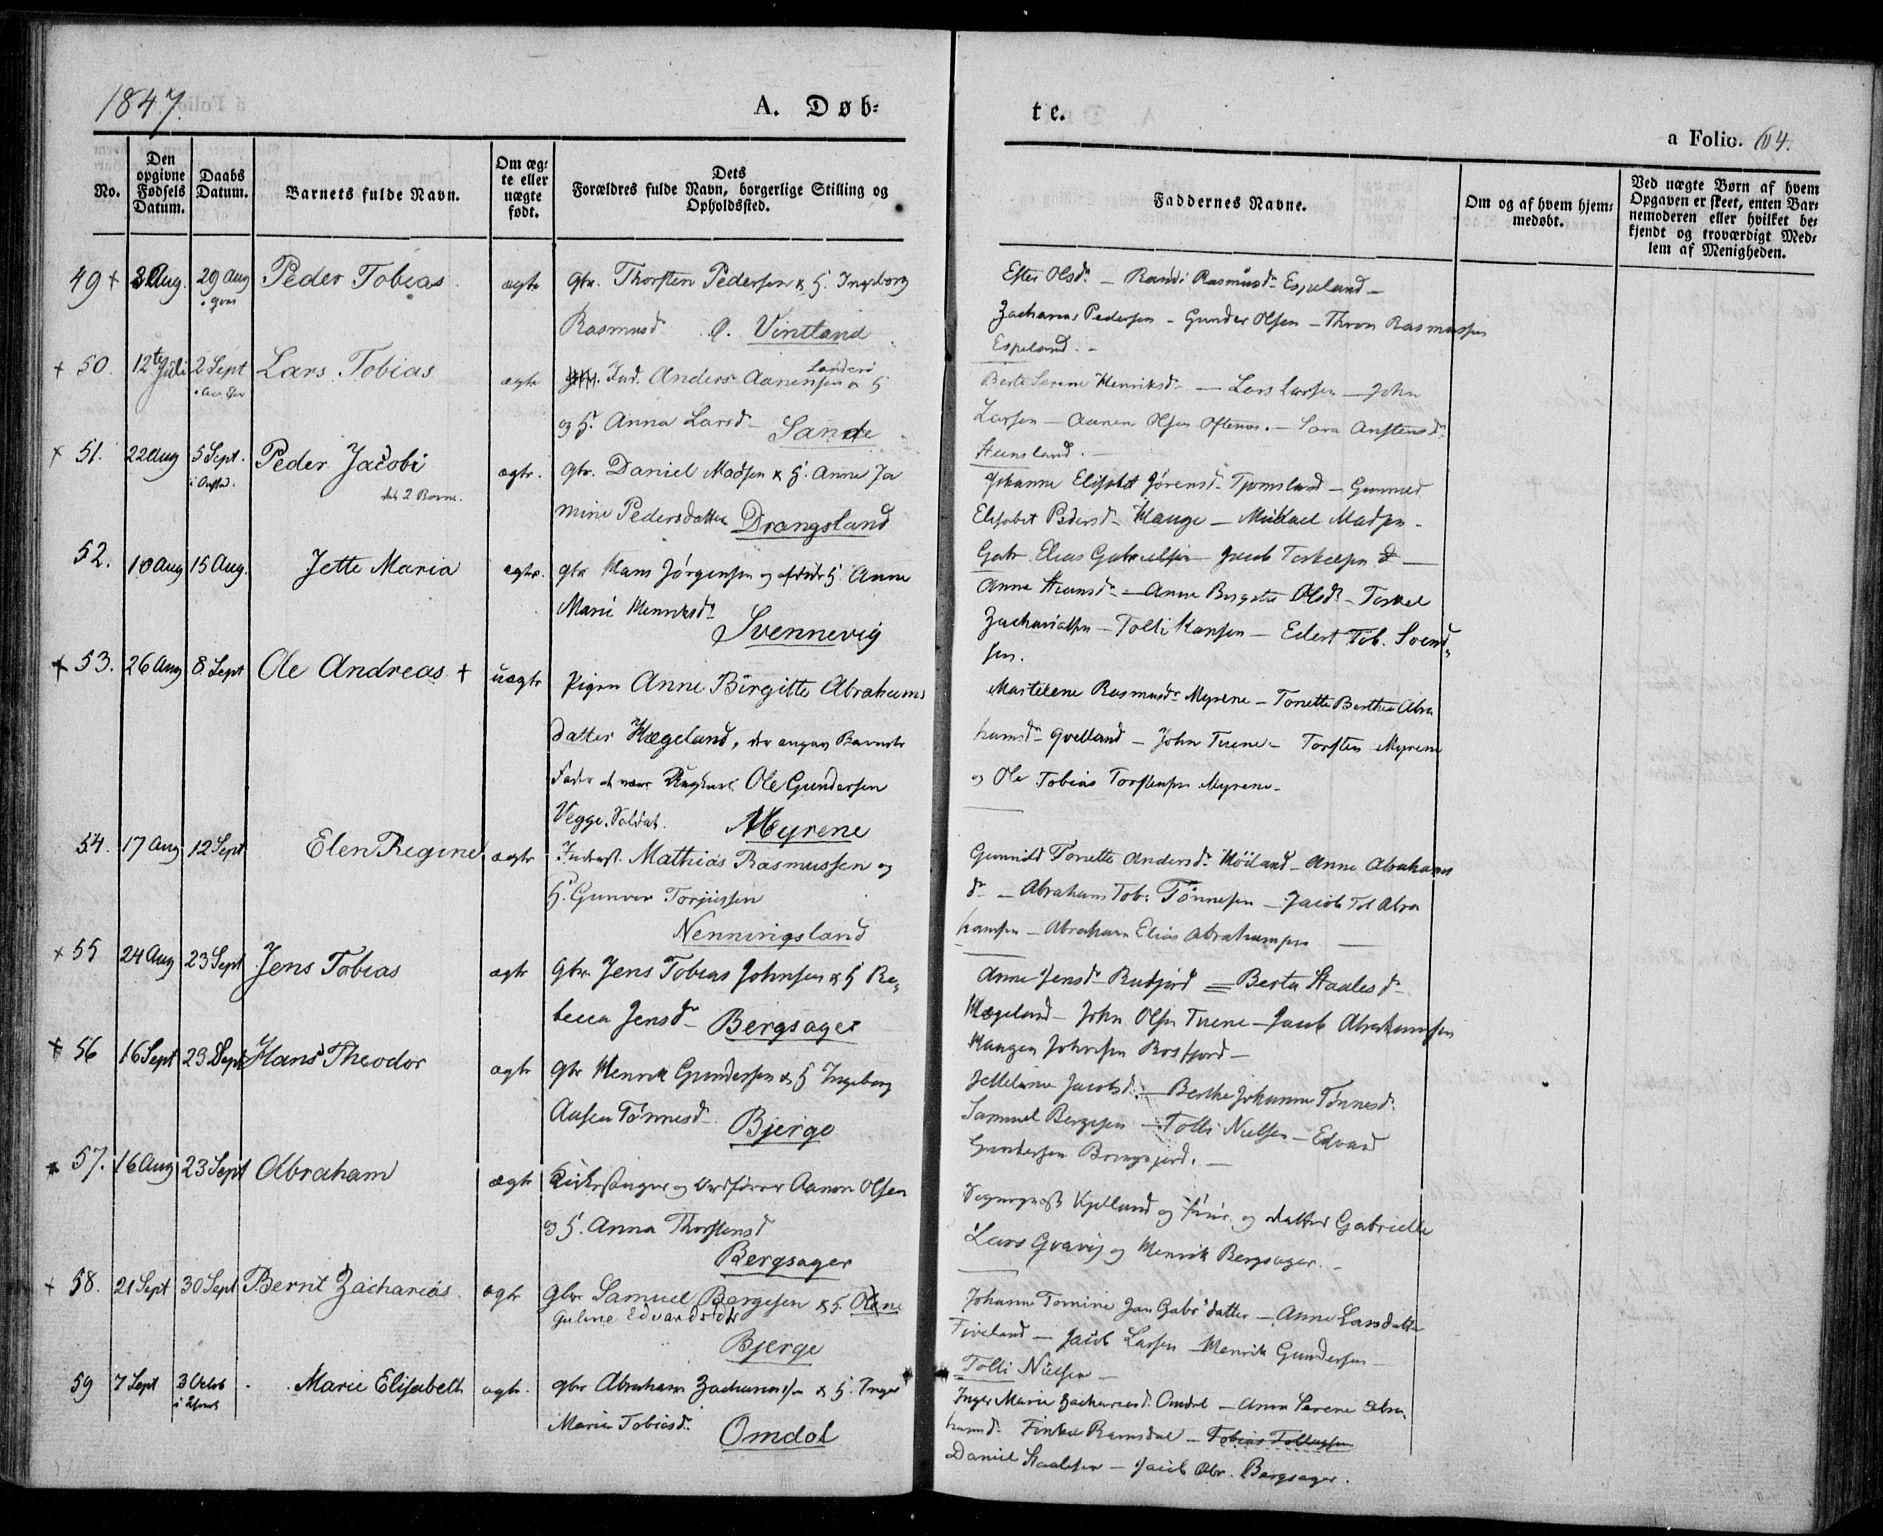 1847.
A. Døb=
te.
a Folio. 104.
No.
Den opgivne Fødsels Datum.
Daabs Datum.
Barnets fulde Navn.
Om æg= te eller uægte født.
Dets Forældres fulde Navn, borgerlige Stilling og Opholdssted.
Faddernes Navne.
Om og af hvem hjem= medøbt.
Ved uægte Børn af hvem Opgaven er skeet, enten Bar= nemoderen eller hvilket be= kjendt og troværdigt Med= lem af Menigheden.
49 + 3 Aug. 29 Aug Peder Tobias ægte gbr. Thorsten Pedersen & H. Ingeborg
Rasmusd Vintland
Ester Olsd. — Randi Rasmusd. Espeland —
Zacharias Pedersen — Gunder Olsen — Thron Rasmussen
Espeland. —
+ 50. 12te Juli 2 Sept Lars Tobias ægte Ind. Anders Aanensen
og H. Anna Larsd — Sande
Berte Serene Henriksd — Lars Larsen — John
Larsen — Aanen Olsen Oftenæs. — Sara Anstensd
+ 51. 22 Aug 5 Sept. Peder Jacobi ægte. gbr. Daniel Madsen & H. Anne Ja
mine Pedersdatter Drangsland
Johanne Elisabet Jørensd. Tjomsland — Gunnild
Elisabet Pedersd — Hauge — Mikael Madsen —
Gabr. Elias Gabrielsen — Jacob Terkelsen
52. 10 Aug 15 Aug. Jette Maria ægte. gbr Hans Jørgensen og H. Anne
Marie Henriksd
Svennevig
Anne — Anne Birgitte Olsd. — Terkel
Zachariasen — Tolli Hansen — Edert Tob. Svend=
sen.
+ 53. 26 Aug 8. Sept Ole Andreas + uægte Pigen Anne Birgitte Abrahams
datter Hægeland, der angav Barnets
Fader at være Ole Gundersen
Vegge, Soldat. Myrene
Martelene Rasmusdr Myrene — Tonette Berthea Abra
hamsd — Qvelland — John Tuene — Torsten Myrene
og Ole Tobias Torstensen Myrene —
54. 17 Aug 12 Sept Elen Regine ægte Inderst. Mathias Rasmussen og
H. Gunvor Torjussen
Nenningsland
Gunnild Tonette Andersd. Høiland — Anne Abrahams
d — Abraham Tob. Tønnesen — Jacob Tob Abra
hamsen — Abraham Elias Abrahamsen —
+ 55 24 Aug 23 Sept Jens Tobias ægte Gbr Jens Tobias Johnsen & H Re=
becca Jensd — Bergsager
Anne Jensd — Rudjord — Berta Staalesd —
Hægeland — John Olsen Tuene — Jacob Abrahamsen
Haagen Johnsen Rosfjord —
+ 56 16 Sept 23 Sept Hans Theodor ægte gbr Henrik Gundersen & H Ingeborg
Aasea Tønnesd — Bjerge
Jetteline Jacobsd. — Berthe Johanne Tønnesd.
Samuel Bergesen — Tolli Nielsen — Edvard
Gundersen
+ 57. 16 Aug 23 Sept Abraham ægte Kirkesanger og Ordfører Aanon Olsen
og H. Anna Thorstensd
Bergsager
Sogneprest Kjelland og Frue og datter Gabrielle
Lars Qvavig og Henrik Bergsager. —
+ 58. 21 Sept 30 Sept Bernt Zacharias. ægte gbr Samuel Bergesen & H. Olene
Guline Edvardsdtr
Bjerge
Johanne Tomine Jan Gabr. datter — Anne Larsdatter
Fiveland — Jacob Larsen — Henrik Gundersen —
Tolli Nielsen —
59 7 Sept 3 Octob Marie Elisabeth ægte. gbr Abraham Zachariassen & H. Inger
Maria Tobiasd. Omdal
Inger Marie Zachariasd. Omdal — Anna Serene Abra=
hamsd. Finkel Ramsdal — Tobias Tollagsen
Daniel Staalesen — Jacob Abr. Bergsager.